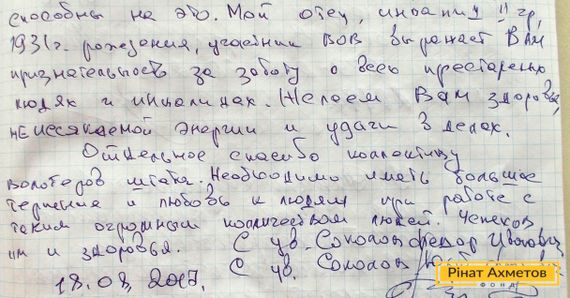 способны на это. Мой отец, инвалид II гр,
1931г. рождения, участник ВОВ выражает Вам
признательность за заботу о всех престарелых
людях и инвалидах. Желаем Вам здоровья,
неиссякаемой энергии и удачи в делах.
Отдельное спасибо коллективу
волонтеров штата. Необходимо иметь большое
терпение и любовь к людям при работе с
таким огромным количеством людей. Успехов
им и здоровья. С ув. Соколов Федор Иванович
18.08.2017. С ув. Соколов
Рінат Ахметов
ФОНД